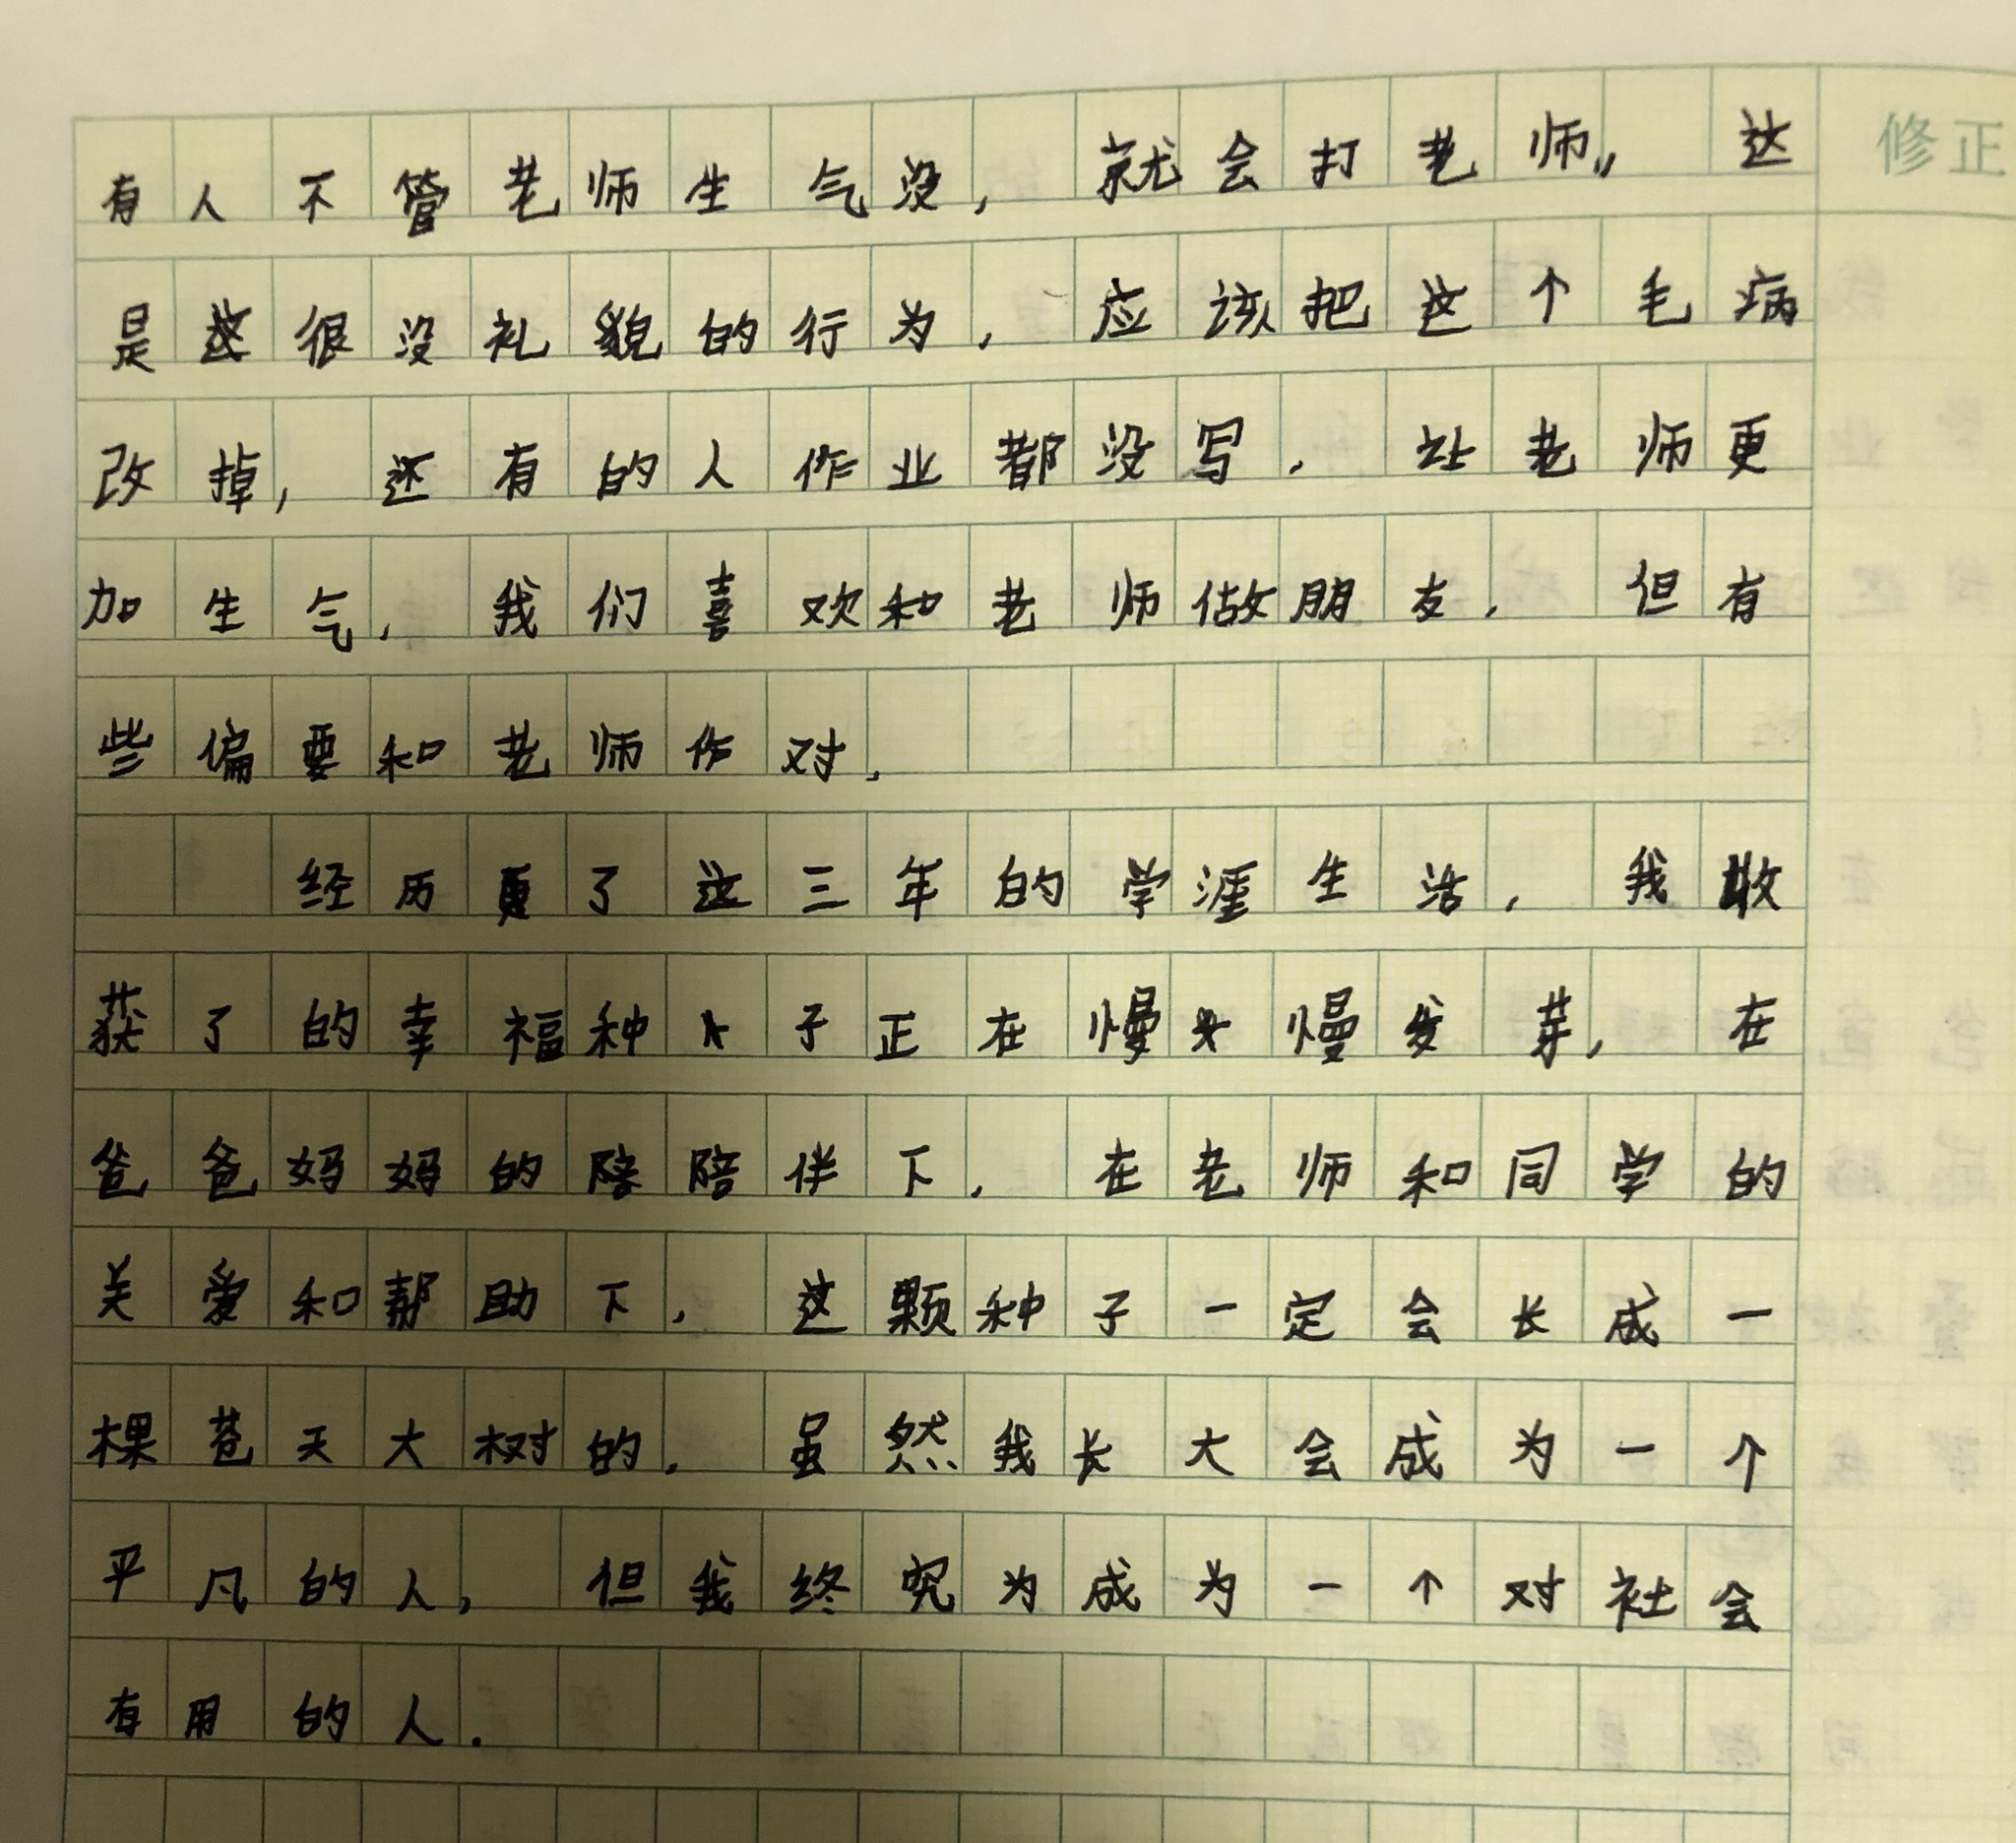 有人不管老师生气没，就会打老师，，这 修正
是这很没礼貌的行为，应该把这个毛病
改掉，还有的人作业都没写，让老师更
加生气，我们喜欢和老师做朋友，但有
些偏要和老师作对，
经历更了这三年的学涯生活，我收
获了的幸福种子正在慢慢发芽，在
爸爸妈妈的陪陪伴下，在老师和同学的
关爱和帮助下，这颗种子一定会长成一
棵苍天大树的，虽然我长大会成为一个
平凡的人，但我终究为成为一个对社会
有用的人.